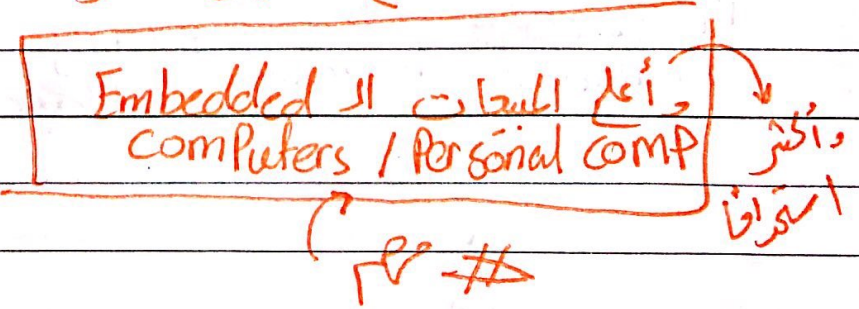 وأعلى المبيعات الـ Embedded
computers / Personal comp
وأكثر
استخداماً
# مهم